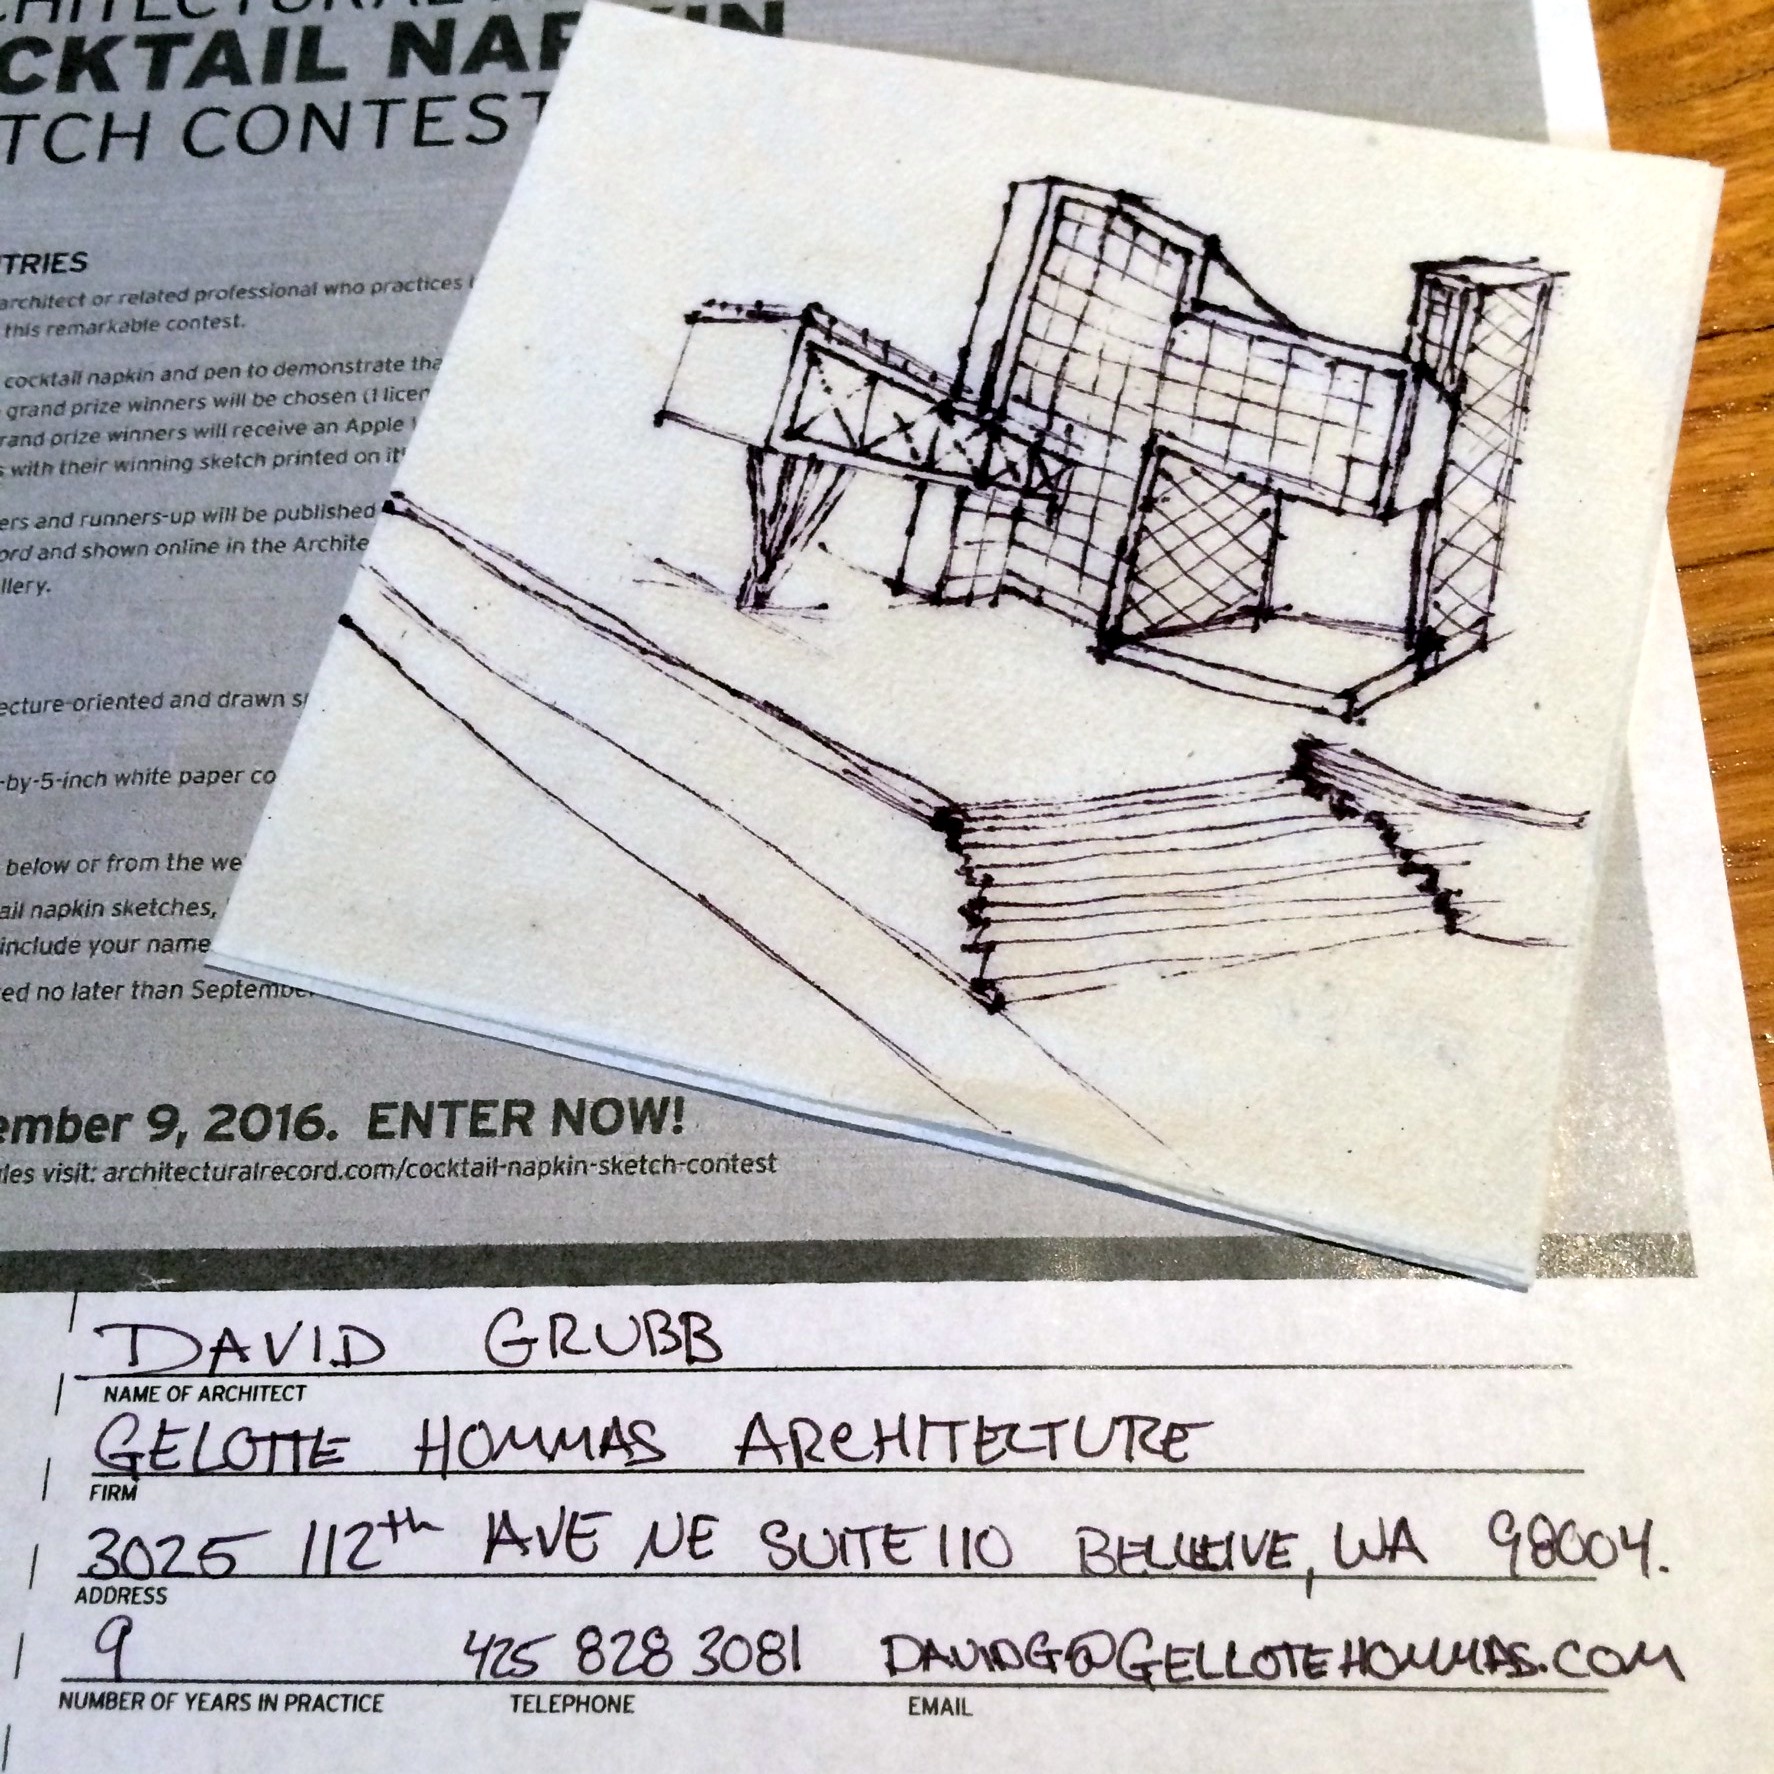 CKTAIL NAPKIN
TCH CONTEST
TRIES
architect or related professional who practices
this remarkable contest.
cocktail napkin and pen to demonstrate tha
grand prize winners will be chosen (1 licen
rand prize winners will receive an Apple
s with their winning sketch printed on it!
ers and runners-up will be published
ord and shown online in the Archite
llery.
ecture-oriented and drawn s
-by-5-inch white paper co
below or from the we
ail napkin sketches,
include your name
ed no later than September
ember 9, 2016. ENTER NOW!
les visit: architecturalrecord.com/cocktail-napkin-sketch-contest
DAVID GRUBB
NAME OF ARCHITECT
GELOTTE HOMMAS ARCHITECTURE
FIRM
3025 112th AVE NE SUITE 110 BELLEVUE, WA 98004.
ADDRESS
9 425 828 3081 DAVIDG@GELLOTEHOMMAS.COM
NUMBER OF YEARS IN PRACTICE TELEPHONE EMAIL